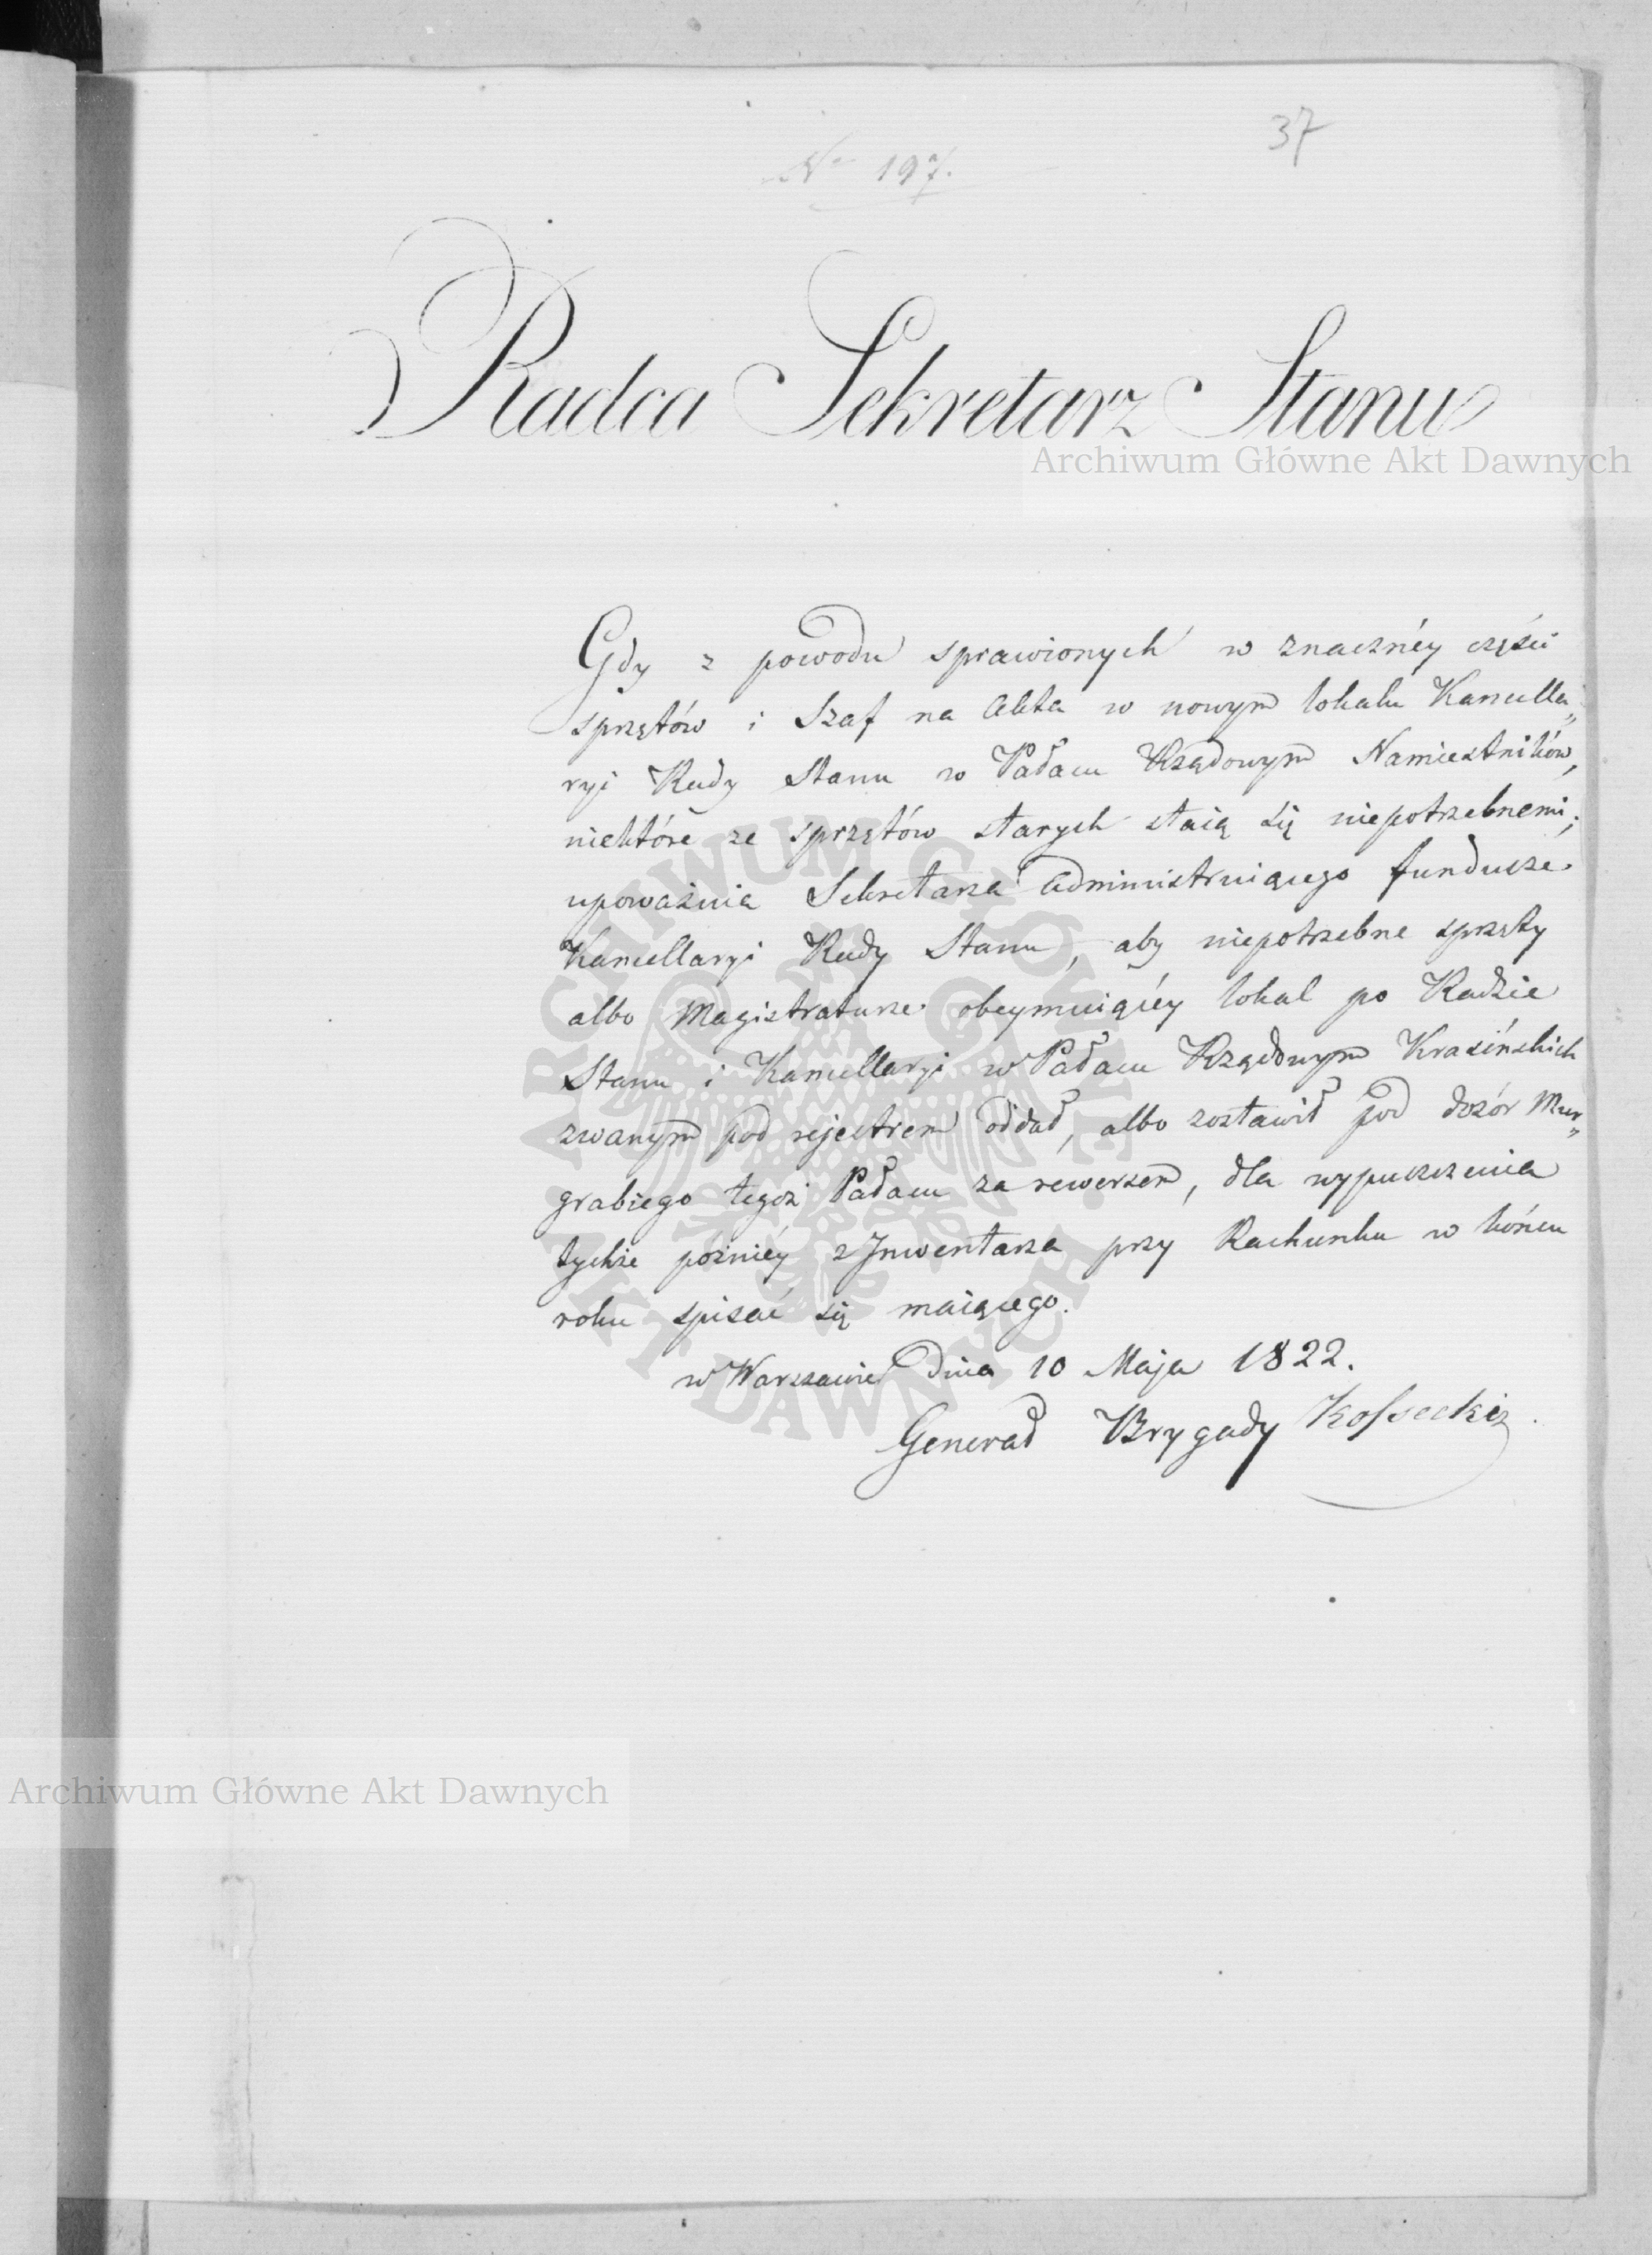 37
No 197.
Radca Sekretarz Stanu
Archiwum Główne Akt Dawnych
Gdy z powodu sprawionych w znacznéy części
sprzętów i Szaf na Akta w nowym lokalu Kancella„
ryi Rady Stanu w Pałacu Rządowym Namiestników,
niektóre ze sprzętów starych staią się niepotrzebnemi;
upoważnia Sekretarza administruiącego fundusze
Kancellaryi Rady Stanu, aby niepotrzebne sprzęty
albo Magistraturze obeymuiącéy lokal po Radzie
Stanu i Kancellaryi w Pałacu Rządowym Krasińskich
zwanym pod rejestrem oddał, albo zostawił pod dozór Mur„
grabiego tegoż Pałacu za rewersem, dla wypuszczenia
tychże późniéy z Jnwentarza przy Rachunku w końcu
roku spisać się maiącego.
w Warszawie dnia 10 Maja 1822.
Generał Brygady Kossecki
ARCHIWUM GŁÓWNE AKT DAWNYCH
Archiwum Główne Akt Dawnych